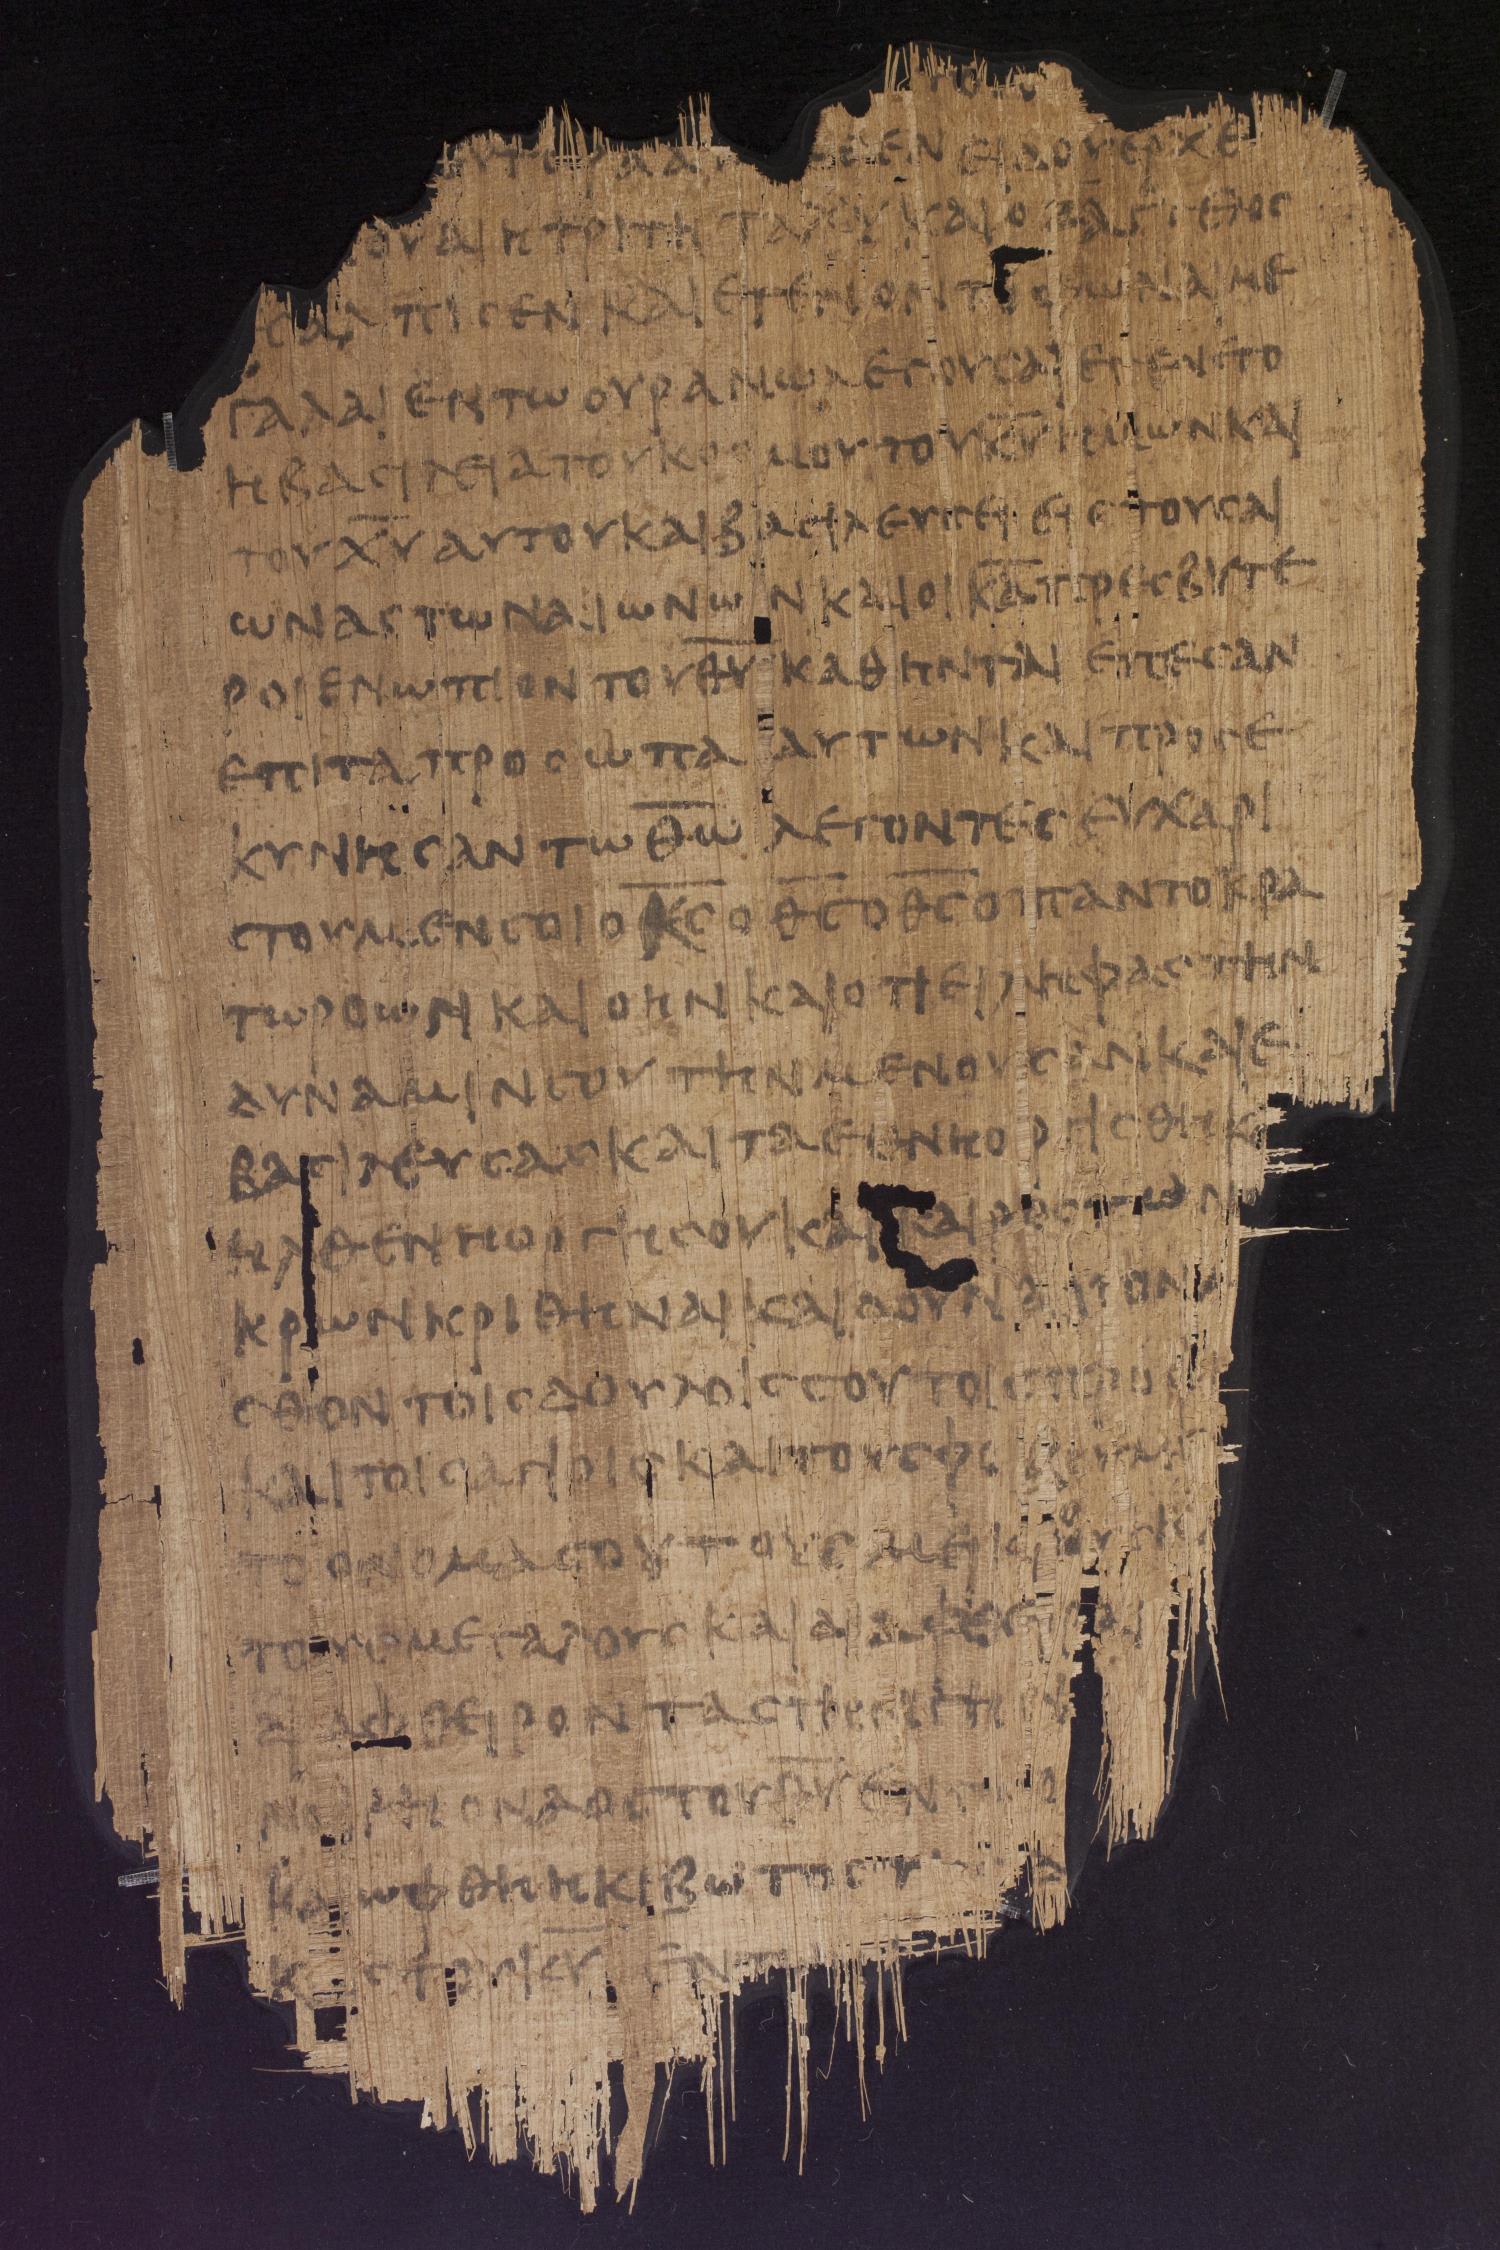 ουαι η τριτη ταχυ και ο ζ αγγελος
εσαλπισεν και εγενοντο φωναι με
γαλαι εν τω ουρανω λεγουσαι εγενετο
η βασιλεια του κοσμου του κ̅υ̅ ημων και
του χ̅υ̅ αυτου και βασιλευσει εις τους αι
ωνας των αιωνων και οι κ̅δ̅ πρεσβυτε
ροι ενωπιον του θ̅υ̅ καθηνται επεσαν
επι τα προσωπα αυτων και προσε
κυνησαν τω θ̅ω̅ λεγοντες ευχαρι
στουμεν σοι ο κ̅ς̅ ο θ̅ς̅ ο θ̅ς̅ ο παντοκρα
τωρ ο ων και ο ην και οτι ειληφας την
δυναμιν σου την μενουσαν και ε
βασιλευσας και τα εθνη οργισθη κ
ηλθεν η οργη σου και καιρος των
κρων κριθηναι και δουναι τον μ
σθον τοις δουλοις σου τοις προφ
και τοις αγιοις και τους φο
το ονομα σου τους μεικρους κ
τους μεγαλους και διαφθειραι
διαφθειροντας την γην
ναος του θ̅υ̅ εν τω
και ωφθη η κιβωτος τη
κης του κ̅υ̅ εν τ